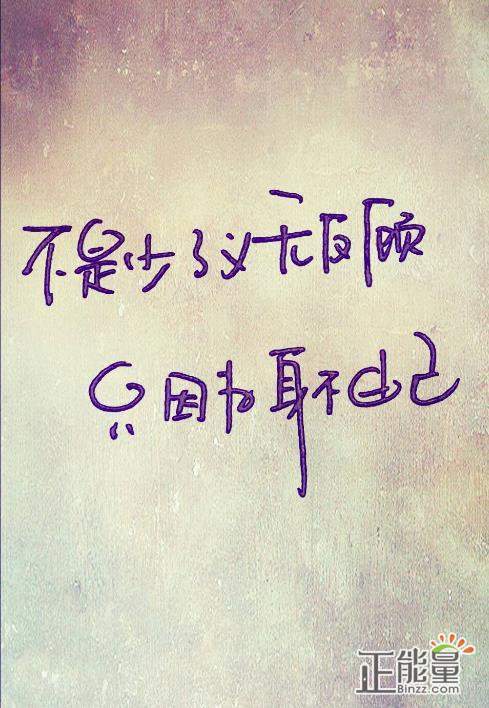 不是少了义无反顾
只因为身不由己
正能量
Binzz.com